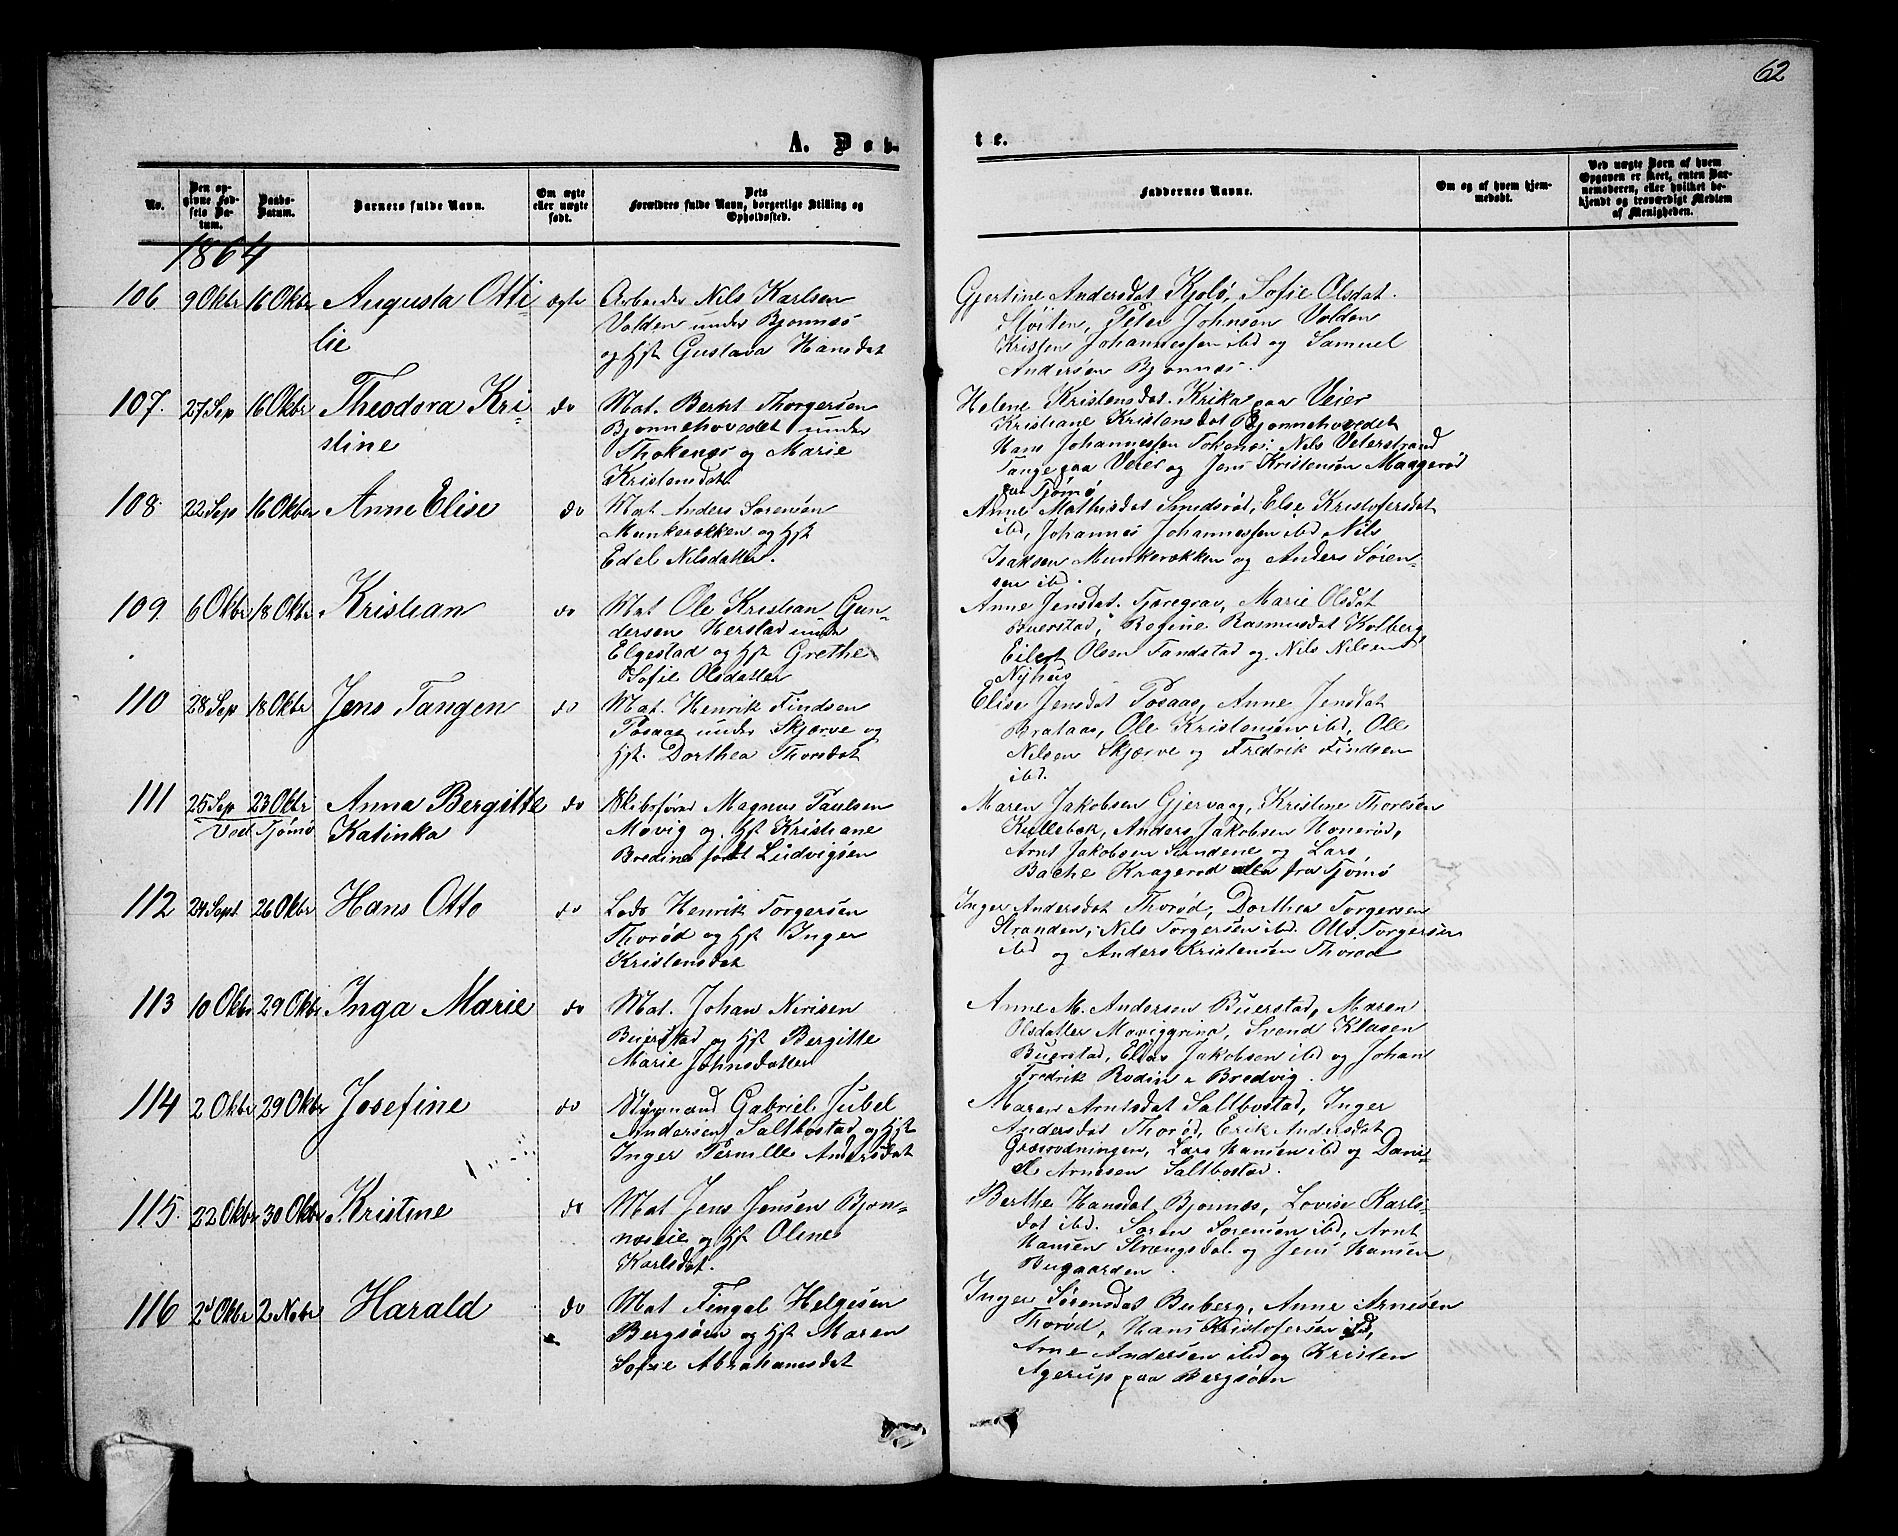 62
A. Døb-
te.
No.
Den op-
givne Fød-
sels Da-
tum.
Daabs-
Datum.
Barnets fulde Navn.
Om ægte
eller uægte
født.
Dets
Forældres fulde Navn, borgerlige Stilling og
Opholdssted.
Faddernes Navne.
Om og af hvem hjem-
medøbt.
Ved uægte Børn af hvem
Opgaven er skeet, enten Bar-
nemoderen, eller hvilket be-
kjendt og troværdigt Medlem
af Menigheden.
1864
106 9 Oktbr 16 Oktbr Augusta Otti-
lie
ægte
Arbeider Nils Karlsen
Volden under Bjonnæs
og Hst Gustava Hansdat
Gjertine Andersdat Kjolø, Sofie Olsdat.
Støiten, Peter Johnsen Volden
Johannessen ibd og Samuel
Andersen Bjonnæs.
107. 27 Sep 16 Oktbr Theodora Kri-
stine
do
Mat. Bernt Thorgersen
Bjonnehovedet under
Thokenæs og Marie
Kristensdat
Helene Kristensdat. Krika paa Veier
Kristiane Kristensdat Bjonnehovedet
Hans Johannessen Tokenes. Nils Veterstrand
Tange paa Veier og Jens Kristensøn Maagerød
paa Tjømø
108. 22 Sep 16 Oktbr Anne Elise
do
Mat Anders Sørensøn
Munkerækken og Hst
Edel Nilsdatter.
Anne Mathisdat Smidsrød, Else Kristofersdat
ibd, Johannes Johannessen ibd Nils
Isaksen Munkerækken og Anders Søren-
sen ibd.
109. 6 Oktbr 18 Oktbr Kristian
do
Mat Ole Kristian Gun-
dersen Herstad under
Elgestad og Hst Grethe
Sofie Olsdatter
Anne Jensdat. Tjæregrav, Marie Olsdat
Buerstad, Regine Rasmusdat Kolberg
Eilert Olsen Tandstad og Nils Nilsen
Nyhus
110 28 Sep 18 Oktbr Jens Tangen
do
Mat. Henrik Findsen
Posaas under Skjerve og
Hst. Dorthea Thorsdat
Elise Jensdat Posaas, Anne Jensdat
Brataas, Ole Kristensen ibd, Ole
Nilsen Skjærve og Fredrik Findsen
ibd.
111 25 Sep 23 Oktbr Anna Bergitte
Tjømø Katinka
do
Skibsfører Magnus Paulsen
Movig og Hst Kristiane
Bredine født Ludvigsen
Maren Jakobsen Gjervaag, Kristine Thoresen
Kullebæk, Anders Jakobsen Honerød,
Arnt Jakobsen Sundene og Lars
Bache Kragerød alle fra Tjømø
112 24 Sept 26 Oktbr Hans Otto
do
Lods Henrik Torgersen
Thorød og Hst Inger
Kristensdat
Inger Andersdat Thorød, Dorthea Torgersen
Stranden, Nils Torgersen ibd. Ole Torgersen
ibd og Anders Kristensen Thorød
113 10 Oktbr 29 Oktbr Inga Marie
do
Mat. Johan Nirisen
Buerstad og Hst Bergitte
Marie Johnsdatter
Anne M. Andersen Buerstad, Maren
Olsdatter Moviggrina, Svend Klasen
Buerstad, Elias Jakobsen ibd og Johan
Fredrik Rodin Bredvig.
114 2 Oktbr 29 Oktbr Josefine
do
Styrmand Gabriel Jubel
Andersen Saltbostad og Hst
Inger Pernille Andersdat
Maren Arntsdat Saltbostad, Inger
Andersdat Thorød, Erik Andersdat
Græsrødningen, Lars Hansen ibd og Dani-
el Arnesen Saltbostad.
115. 22 Oktbr 30 Oktbr Kristine
do
Mat Jens Jensen Bjon-
næseie og Hst Oline
Karlsdat.
Berthe Hansdat Bjonnæs, Lovise Karls-
dat ibd. Søren Sørensen ibd, Arnt
Hansen Strængsdal og Jens Hansen
Bugaarden.
116 2d Oktbr 2 Nobr Harald
do
Mat Fingal Helgesen
Bergsøen og Hst Maren
Sofie Abrahamsdat
Inger Sørensdat Buberg, Anne Arnesen
Thorød, Hans Kristofersen ibd,
Arne Andersen ibd og Kristen
Agerup paa Bergsøen